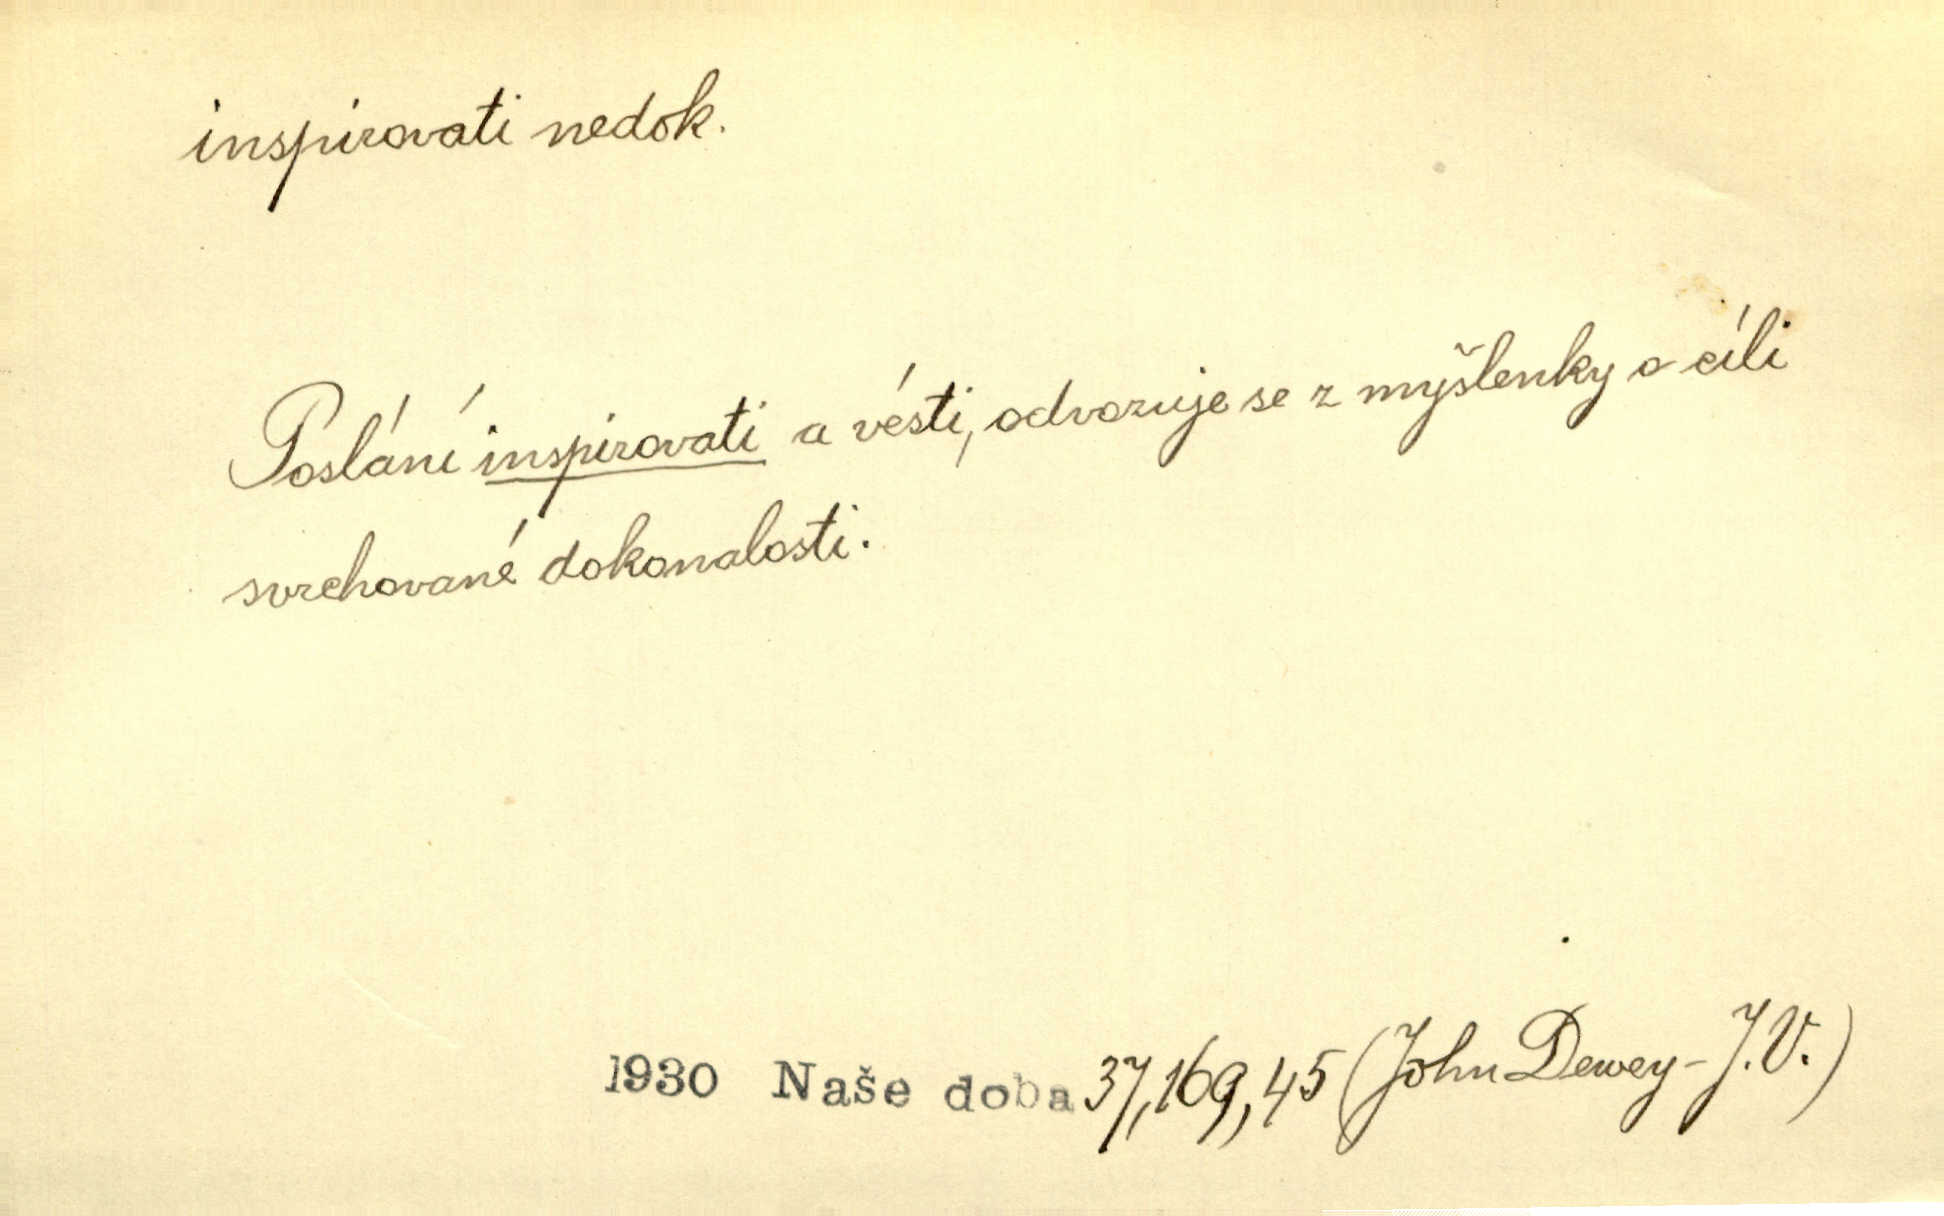 inspirovati nedok.
Poslání inspirovati a vésti, odvozuje se z myšlenky o cíli
svrchované dokonalosti.
1930 Naše doba 37,169,45 (John Dewey - J.V.)